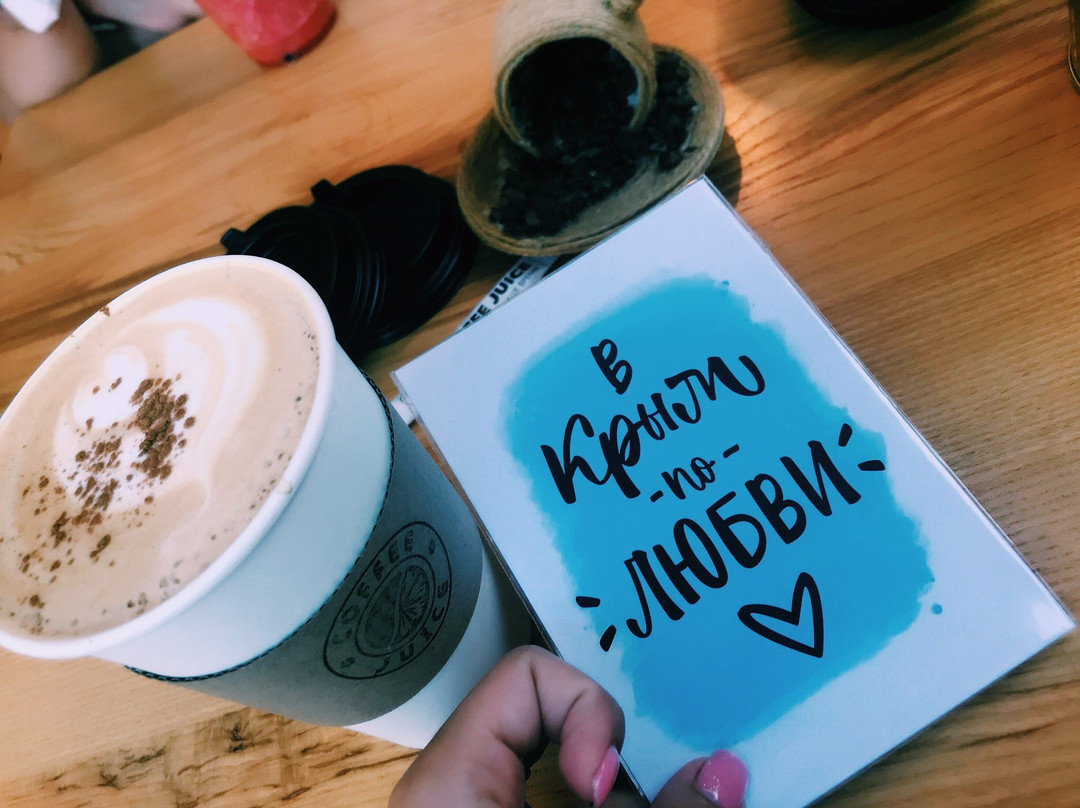 В
Крым
-по-
ЛЮБВИ
COFFEE
JUICE
FEE JUICE